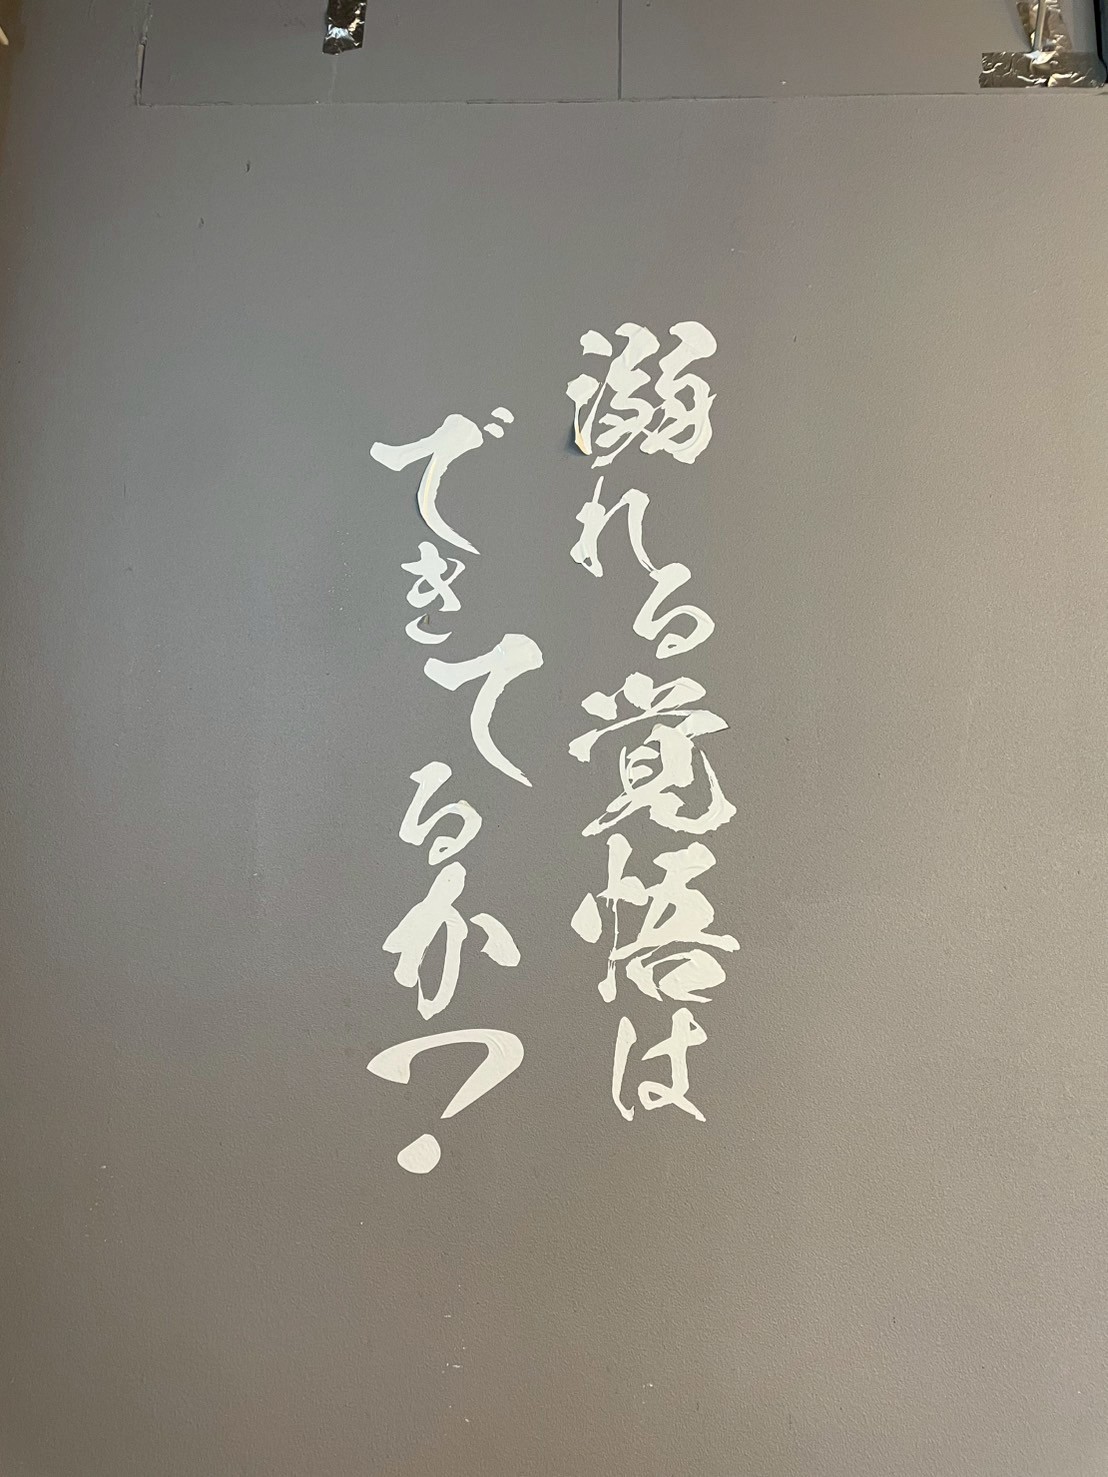 溺れる覚悟は
できてるか?